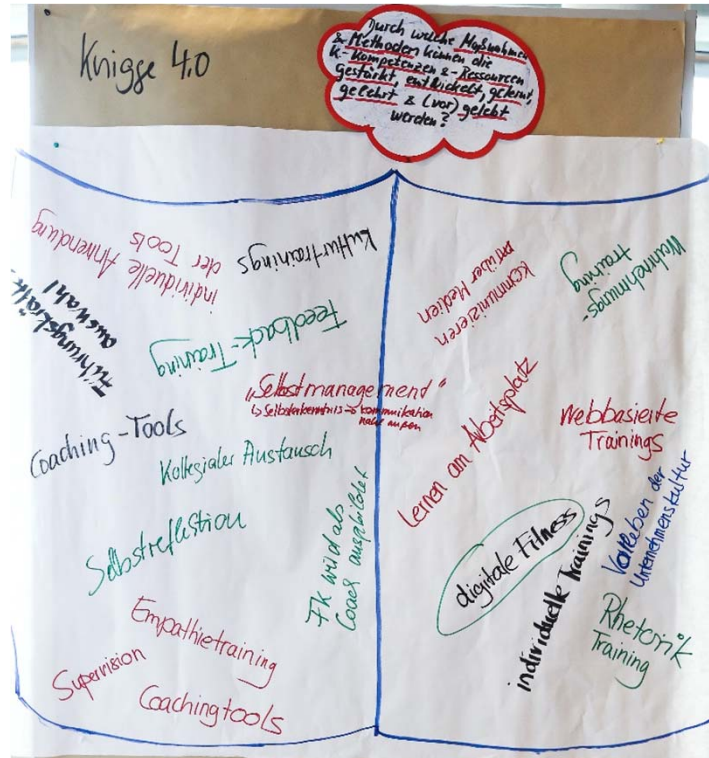 Knigge 4.0
Durch welche Maßnahmen
& Methoden können die
K-Kompetenzen & -Ressourcen
gestärkt, entwickelt, gelernt,
gelehrt & (vor) gelebt
werden?
individuelle Anwendung
der Tools
Kulturtrainings
Führungskräfte-
auswahl
Feedback-Training
"Selbstmanagemend"
↳ Selbsterkenntnis → Kommunikation
nahe außen
Coaching-Tools
Kollegialer Austausch
Selbstreflektion
FK wird als
Coach ausgebildet
Empathietraining
Supervision
Coachingtools
Kommunizieren
über Medien
Wahrnehmungs-
training
Lernen am Arbeitsplatz
Webbasierte
Trainings
digitale Fitness
individuelle Trainings
Vorleben der
Unternehmenskultur
Rhetorik
Training